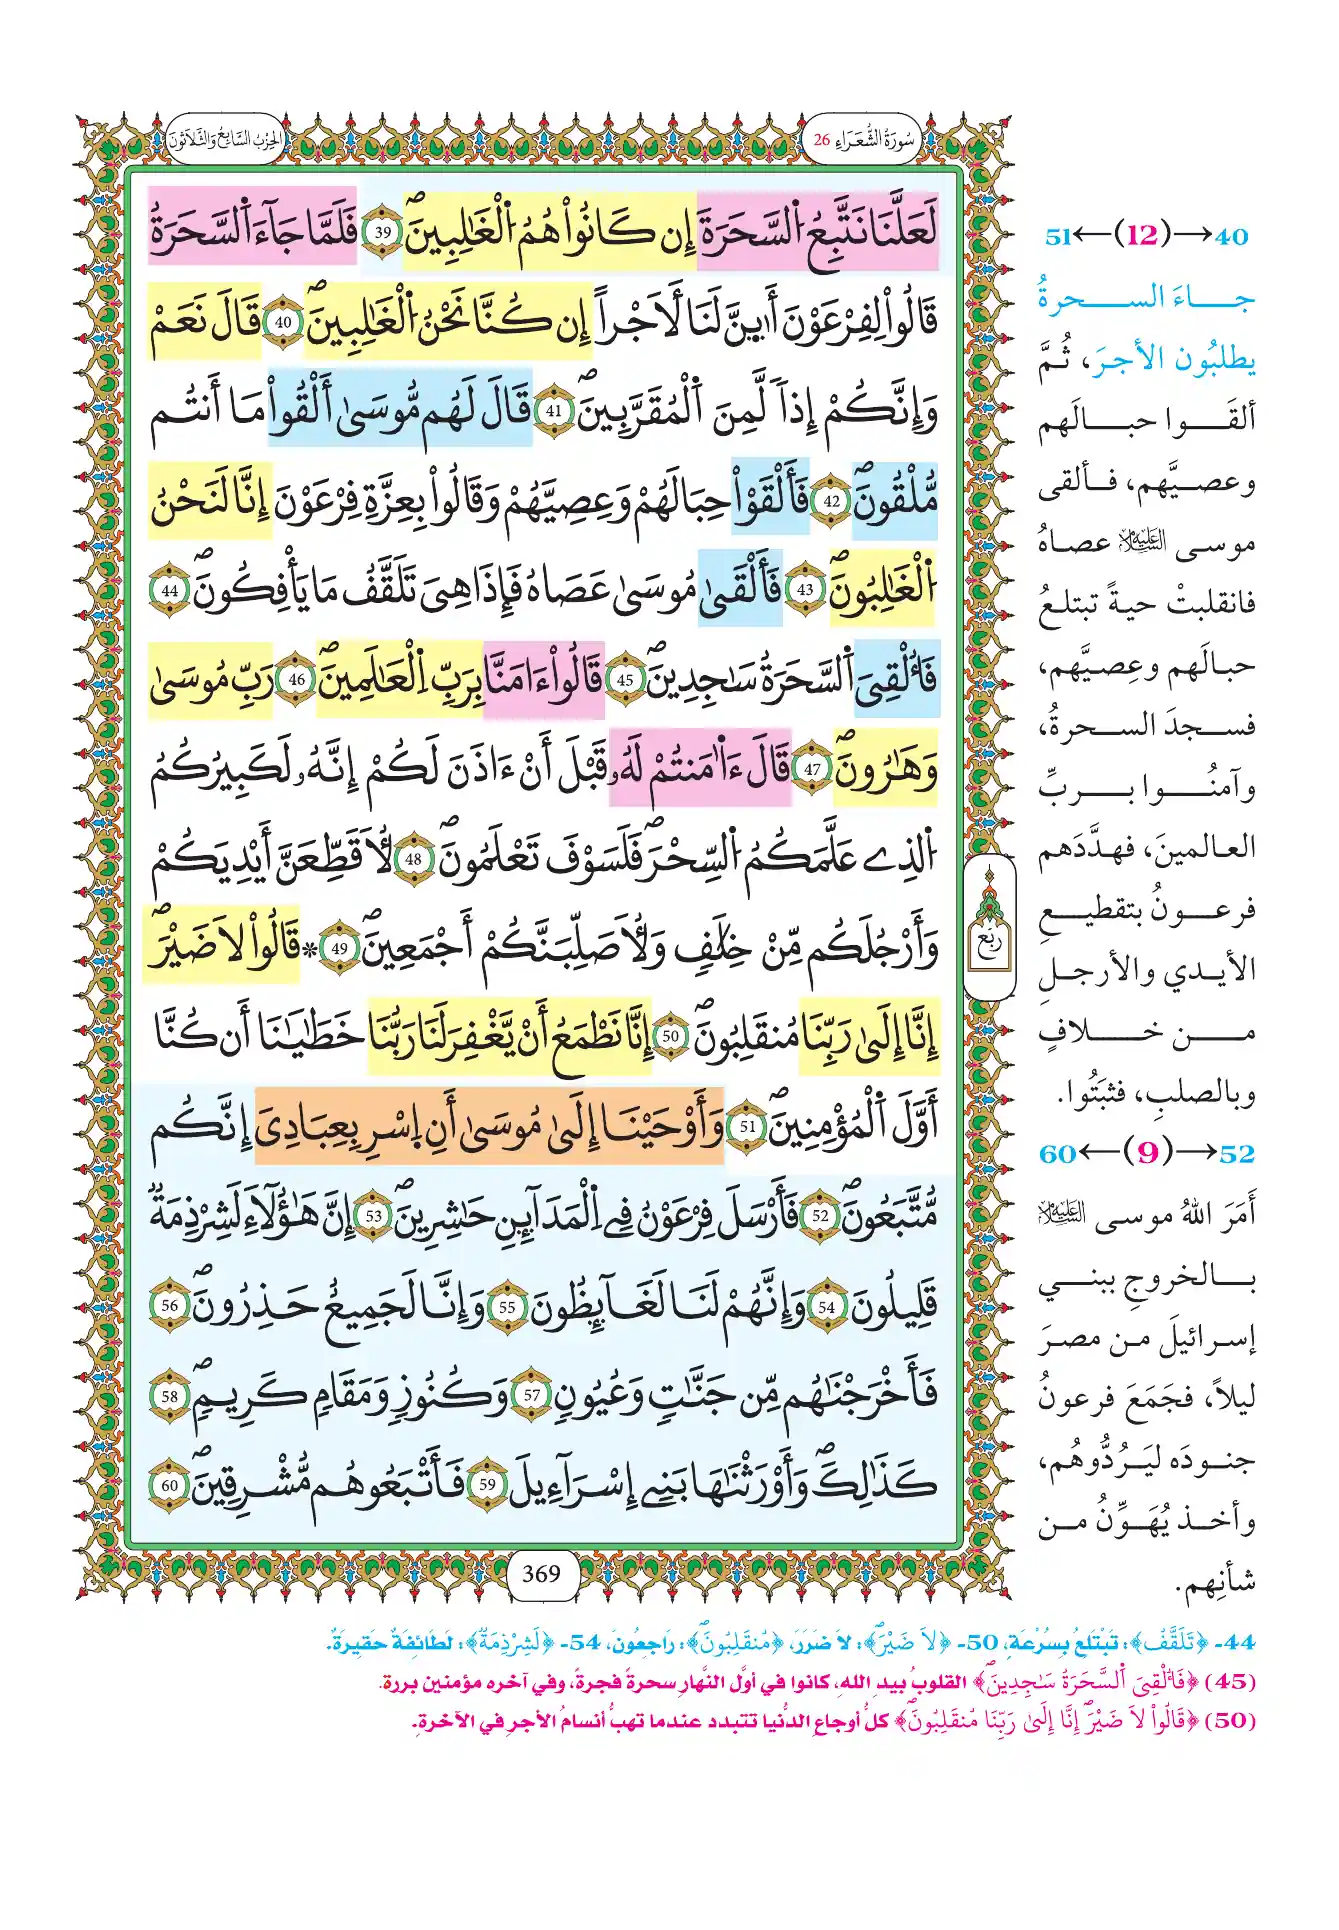 سُورَةُ الشُّعَرَاءِ 26
الحِزْبُ السَّابِعُ وَالثَّلَاثُونَ
لَعَلَّنَا نَتَّبِعُ اُ۬لسَّحَرَةَ إِن كَانُواْ هُمُ اُ۬لْغَٰلِبِينَۖ 39 فَلَمَّا جَآءَ اَ۬لسَّحَرَةُ
قَالُواْ لِفِرْعَوْنَ أَئِنَّ لَنَا لَأَجْراً إِن كُنَّا نَحْنُ اُ۬لْغَٰلِبِينَۖ 40 قَالَ نَعَمْ
وَإِنَّكُمْ إِذاٗ لَّمِنَ اَ۬لْمُقَرَّبِينَۖ 41 قَالَ لَهُم مُّوسَىٰ أَلْقُواْ مَا أَنتُم
مُّلْقُونَۖ 42 فَأَلْقَوْاْ حِبَالَهُمْ وَعِصِيَّهُمْ وَقَالُواْ بِعِزَّةِ فِرْعَوْنَ إِنَّا لَنَحْنُ
اُ۬لْغَٰلِبُونَۖ 43 فَأَلْقَىٰ مُوسَىٰ عَصَاهُ فَإِذَا هِىَ تَلَقَّفُ مَا يَأْفِكُونَۖ 44
فَأُلْقِىَ اَ۬لسَّحَرَةُ سَٰجِدِينَۖ 45 قَالُواْ ءَامَنَّا بِرَبِّ اِ۬لْعَٰلَمِينَۖ 46 رَبِّ مُوسَىٰ
وَهَٰرُونَۖ 47 قَالَ ءَاٰمَنتُمْ لَهُۥ قَبْلَ أَنْ ءَاذَنَ لَكُمْ إِنَّهُۥ لَكَبِيرُكُمُ
اُ۬لذِے عَلَّمَكُمُ اُ۬لسِّحْرَۖ فَلَسَوْفَ تَعْلَمُونَۖ 48 لَأُقَطِّعَنَّ أَيْدِيَكُمْ
وَأَرْجُلَكُم مِّنْ خِلَٰفٍ وَلَأُصَلِّبَنَّكُمْ أَجْمَعِينَۖ 49 * قَالُواْ لَا ضَيْرَۖ
إِنَّا إِلَىٰ رَبِّنَا مُنقَلِبُونَۖ 50 إِنَّا نَطْمَعُ أَنْ يَّغْفِرَ لَنَا رَبُّنَا خَطَٰيَٰنَا أَن كُنَّا
أَوَّلَ اَ۬لْمُؤْمِنِينَۖ 51 وَأَوْحَيْنَا إِلَىٰ مُوسَىٰ أَنِ اِ۪سْرِ بِعِبَادِىَ إِنَّكُم
مُّتَّبَعُونَۖ 52 فَأَرْسَلَ فِرْعَوْنُ فِے اِ۬لْمَدَآئِنِ حَٰشِرِينَۖ 53 إِنَّ هَٰؤُلَآءِ لَشِرْذِمَةٞ
قَلِيلُونَ 54 وَإِنَّهُمْ لَنَا لَغَآئِظُونَ 55 وَإِنَّا لَجَمِيعٌ حَذِرُونَۖ 56
فَأَخْرَجْنَٰهُم مِّن جَنَّٰتٍ وَعُيُونٍ 57 وَكُنُوزٍ وَمَقَامٍ كَرِيمٍۖ 58
كَذَٰلِكَۖ وَأَوْرَثْنَٰهَا بَنِے إِسْرَآءِيلَ 59 فَأَتْبَعُوهُم مُّشْرِقِينَۖ 60
ربع
369
40→(12)←51
جاءَ السحرةُ
يطلبُون الأجرَ، ثُمَّ
ألقَوا حبالَهم
وعصيَّهم، فألقى
موسى عليه السلام عصاهُ
فانقلبتْ حيةً تبتلعُ
حبالَهم وعِصيَّهم،
فسجدَ السحرةُ،
وآمنُوا بربِّ
العالمينَ، فهدَّدَهم
فرعونُ بتقطيعِ
الأيدي والأرجلِ
من خلافٍ
وبالصلبِ، فثبَتُوا.
52→(9)←60
أَمَرَ اللهُ موسى عليه السلام
بالخروجِ ببني
إسرائيلَ من مصرَ
ليلاً، فجَمَعَ فرعونُ
جنودَه ليَرُدُّوهُم،
وأخذ يُهَوِّنُ من
شأنِهم.
44- ﴿تَلَقَّفُ﴾: تَبْتَلعُ بِسُرْعَةٍ، 50- ﴿لَا ضَيْرَۖ﴾: لَا ضَرَرَ، ﴿مُنقَلِبُونَۖ﴾: رَاجعُونَ، 54- ﴿لَشِرْذِمَةٞ﴾: لَطَائِفَةٌ حَقِيرَةٌ.
(45) ﴿فَأُلْقِىَ اَ۬لسَّحَرَةُ سَٰجِدِينَۖ﴾ القلوبُ بيدِ اللهِ، كانوا في أوَّلِ النَّهارِ سحرةً فجرةً، وفي آخره مؤمنين بررة.
(50) ﴿قَالُواْ لَا ضَيْرَۖ إِنَّا إِلَىٰ رَبِّنَا مُنقَلِبُونَۖ﴾ كلُّ أوجاعِ الدُّنيا تتبدد عندما تهبُّ أنسامُ الأجرِ في الآخرةِ.